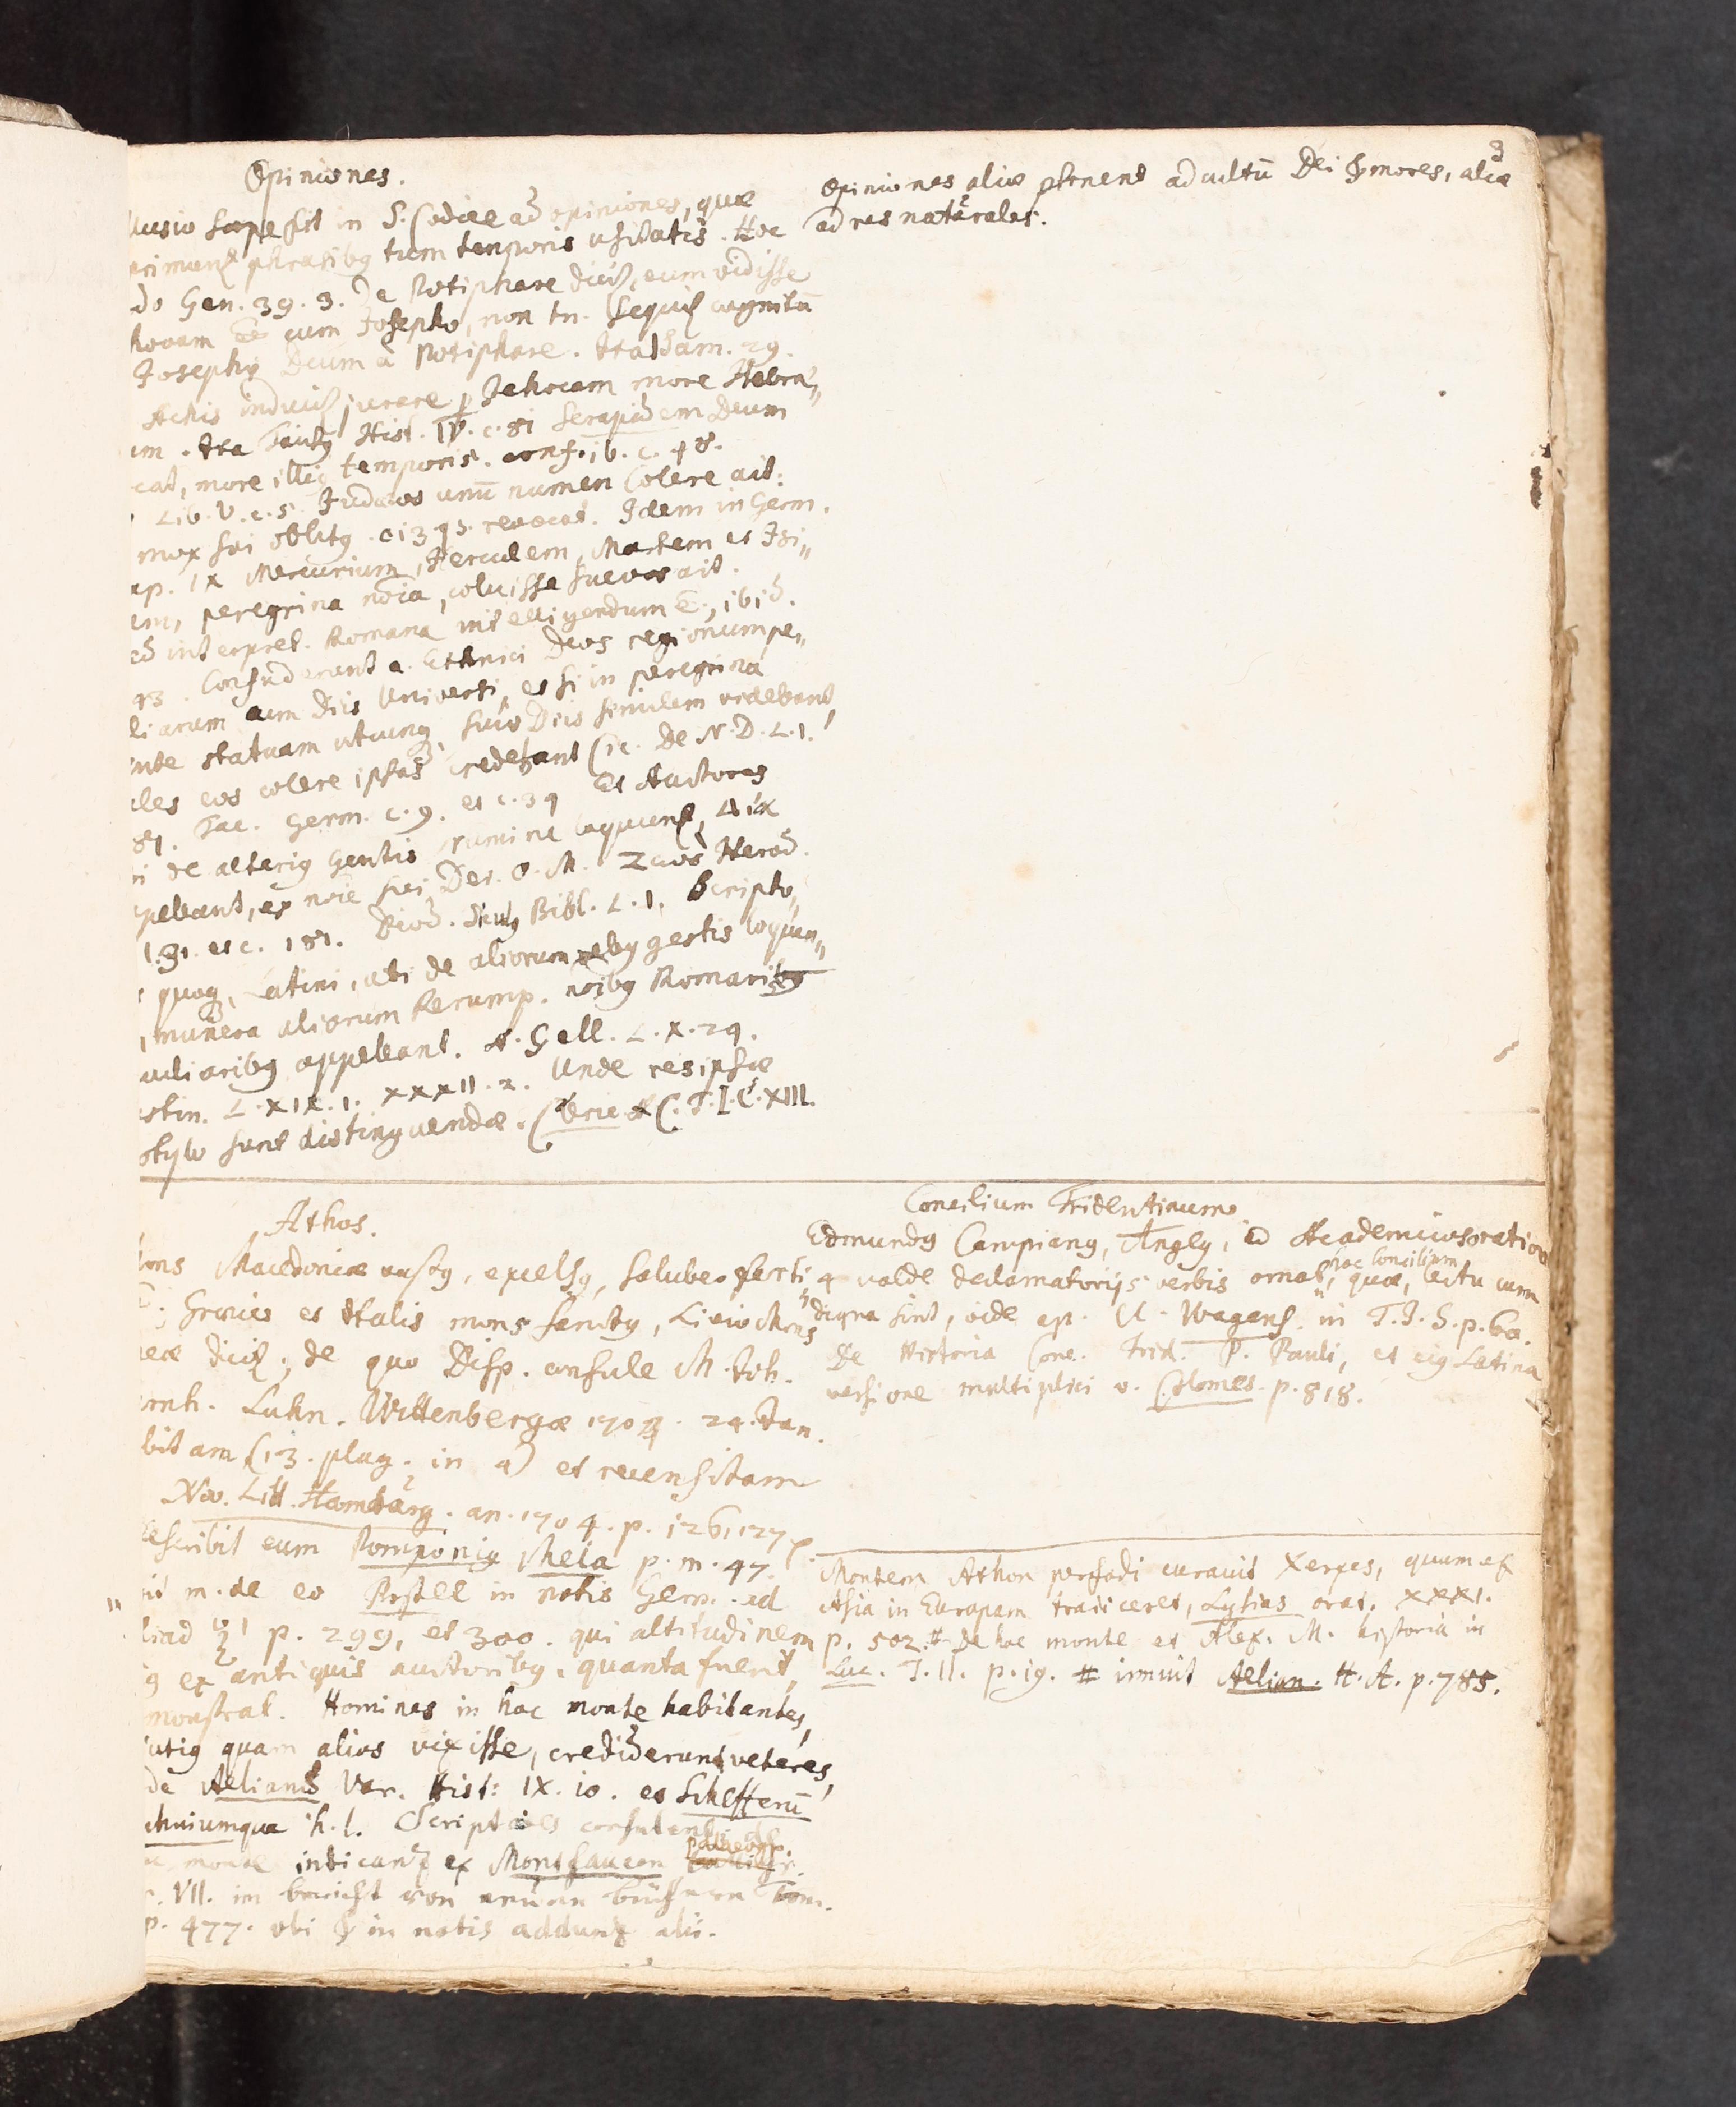 3
Opiniones.
llusio sæpe fit in S. Codice ad opiniones, quæ
phrasibq tum temporis usitatis. Hoc
do Gen. 39. 3. De Potiphare dicit, eum vidisse
hovam cum Josepho, non tn. sequit cognitū
Josephq Deum a Potiphare. Ita 1 Sam. 29.
Achis jurare p Jehovam more Hebræ,,
um. Ita Tacitq Hist. IV. c. 81 Serapidem Deum
cat, more illiq temporis. conf. ib. c. 48.
Lib. V. c. 5. Judæos unū numen colere ait:
mox sui oblitq. revocat. Idem in Germ.
ap. IX Mercurium, Herculem, Martem et Isi,,
em, peregrina nōia, coluisse Suevos ait.
ed interpret. Romana intelligendum ē, ibid.
43. Confuderunt a. Ethnici Deos regionum pe,,
liarum cum Diis Universi, et si in peregrina
nte statuam utcunq suis Diis similem videbant,
ales eos colere ipsas credebant Cic. De N. D. L. 1.
81. Tac. Germ. c. 9. et c. 34 Et Auctores
i de alteriq Gentis numine loquunt,
pellant, et nōie sui Dei. O. M. Herod.
1. 31. et c. 181. Diod. Siculq Bibl. L. 1. Scripto,,
quoq, Latini, ubi de aliorum rebq gestis loquun,,
, munera aliorum Rerump. nōibq Romani
uliaribq appellant. A. Gell. L. X. 24.
stin. L. XIX. 1. XXXII. 2. Unde res ipsæ
stylo sunt distinguendæ. Cleric. A. C. T. I. C. XIII.
Opiniones aliæ ptinent ad cultū Dei & mores, aliæ
ad res naturales.
Athos.
ons Macedoniæ vastq, excelsq, saluber, ferti
Græcis et Italis mons sanctq, Livio Mons
dicit; de quo Disp. consule M. Joh.
ernh. Luhn. Wittenbergæ 1703. 24. Jan.
bitam (13. plag. in 4) et recensitam
Nov. Litt. Hamburg. an. 1704. p. 126, 127.
escribit eum Pomponiq Mela p. m. 47.
m. de eo Postell in notis Germ. ad
p. 299, et 300. qui altitudinem
q ex antiquis auctoribq, quanta fuerit,
monstrat. Homines in hoc monte habitantes,
utiq quam alios vixisse, crediderunt veteres,
de Aeliani Var. Hist: IX. 10. et Schefferū
uhniumque h. l. Scriptores consulendi de
monte indicant ex Montfaucon Palaeogr.
VII. im bericht von neuen büchern Tom.
p. 477. ubi & in notis addunt alii.
Concilium Tridentinum.
Edmundq Campianq, Anglq, in Academicos oratio
4 valde declamatoriis verbis ornat, hoc Concilium quæ, lectu cum
digna sint, vide ap. U. Wagens. in T. I. S. p. 60.
De Historia Conc. Trid. P. Pauli, et eiq Latina
versione multiplici v. Colomes. p. 818.
Montem Athon perfodi curavit Xerxes, quum ex
Asia in Europam traiiceret, Lysias orat. XXXI.
p. 502. # De hoc monte et Alex. M. historia in
Luc. T. II. p. 19. # innuit Aelian. H. A. p. 785.